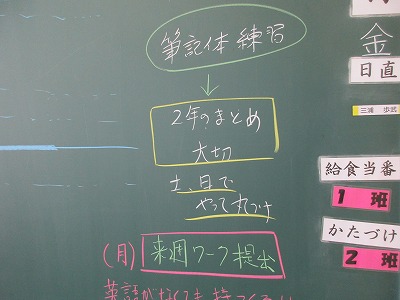 筆記体練習
↓
2年のまとめ
大切
土、日で
やって丸づけ
(月) 来週ワーク提出
英語がなくても持ってくる
金
日直
三浦
給食当番
1 班
かたづけ
2 班